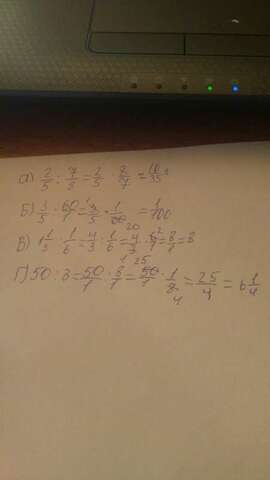 а) 2/5 : 7/8 = 2/5 · 8/7 = 16/35
Б) 3/5 : 60/1 = 3/5 · 1/60 = 1/100
В) 1 1/3 : 1/6 = 4/3 · 1/6 = 4/3 · 6/1 = 8/1 = 8
Г) 50 : 8 = 50/1 : 8/1 = 50/1 · 1/8 = 25/4 = 6 1/4